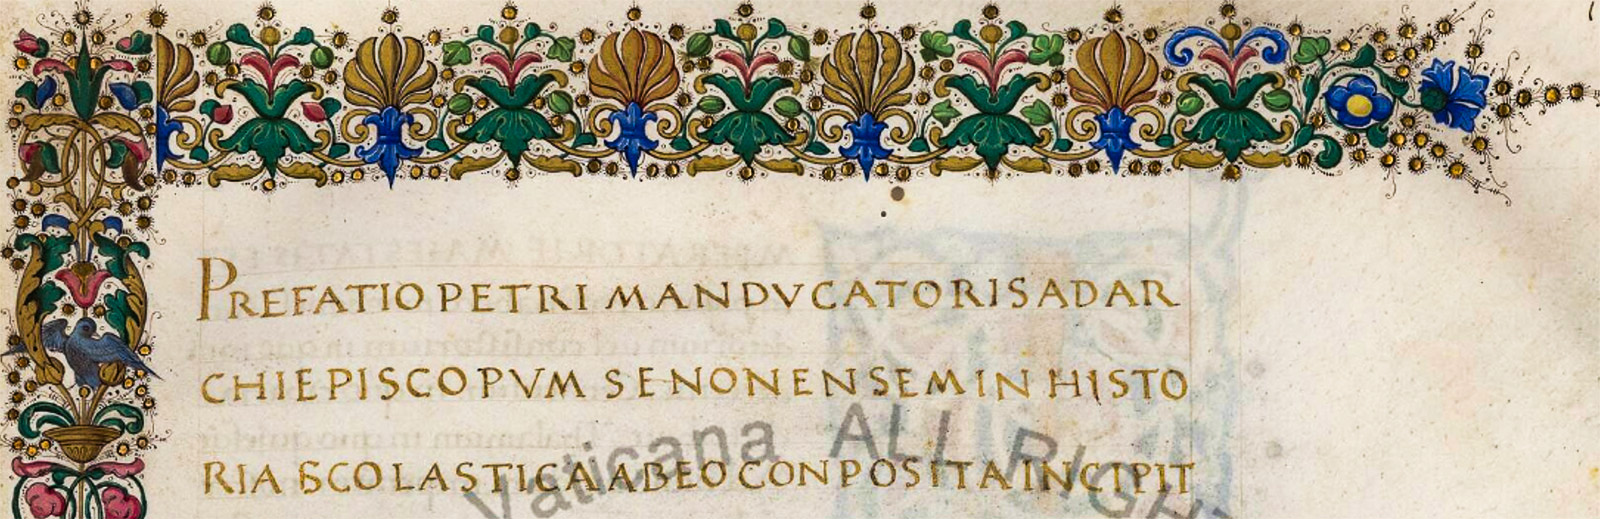 PREFATIO PETRI MANDVCATORIS AD AR
CHIEPISCOPVM SENONENSEM IN HISTO
RIA SCOLASTICA AB EO CONPOSITA INCIPIT
Vaticana ALL RIGHT